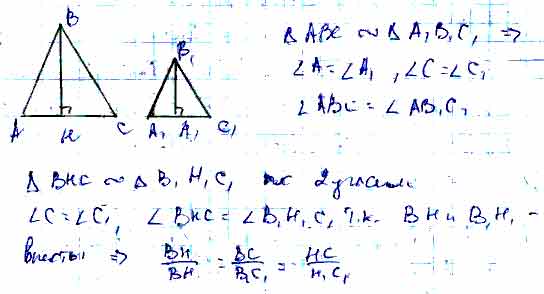 B
B₁
A H C A₁ H₁ C₁
△ ABC ∼ △ A₁B₁C₁ ⇒
∠A = ∠A₁, ∠C = ∠C₁
∠ABC = ∠AB₁C₁
△ BHC ∼ △ B₁H₁C₁ по 2 углам
∠C = ∠C₁, ∠BHC = ∠B₁H₁C₁ т.к. BH и B₁H₁ –
высоты ⇒ BH/BH = BC/B₁C₁ = HC/H₁C₁